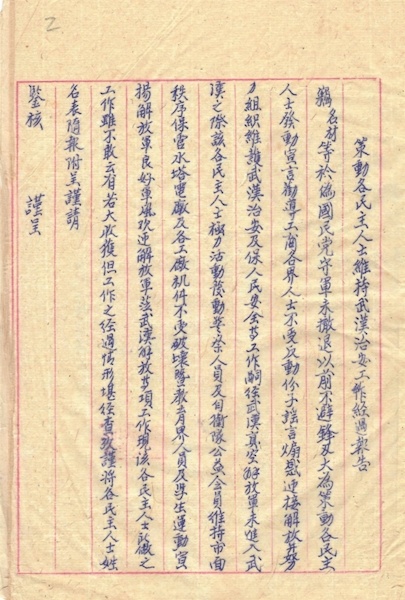 2
策動各民主人士維持武漢治安工作經過報告
竊名対等於偽國民党守軍未撤退以前不避鋒刃大為策動各民主
人士發動宣言勸導工商各界人士不受反動份子謠言煽惑迎接解放并努
力組織維護武漢治安及保人民安全等工作嗣後武漢真空解放軍未進入武
漢之際該各民主人士極力活動發動警察人員及自衛隊公益会員維持市面
秩序保管水塔電廠及各工廠机件不受破壞暨教育界人員及學生運動宣
揚解放軍良好軍風欢迎解放軍涖武漢解放等項工作現該各民主人士所做之
工作雖不敢云有若大收獲但工作之經過情形堪待查攷謹將各民主人士姓
名表隨報附呈謹請
鑒核　謹呈